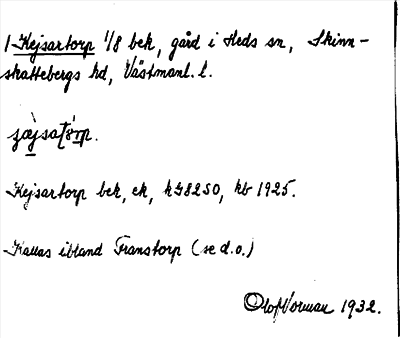 1 Kejsartorp 1/8 bek, gård i Heds sn, Skinn-
skattebergs hd, Västmanl. l.
Kejsartorp bek, ek, kb 1925.
Kallas ibland Franstorp (se d.o.)
Olof Norman 1932.